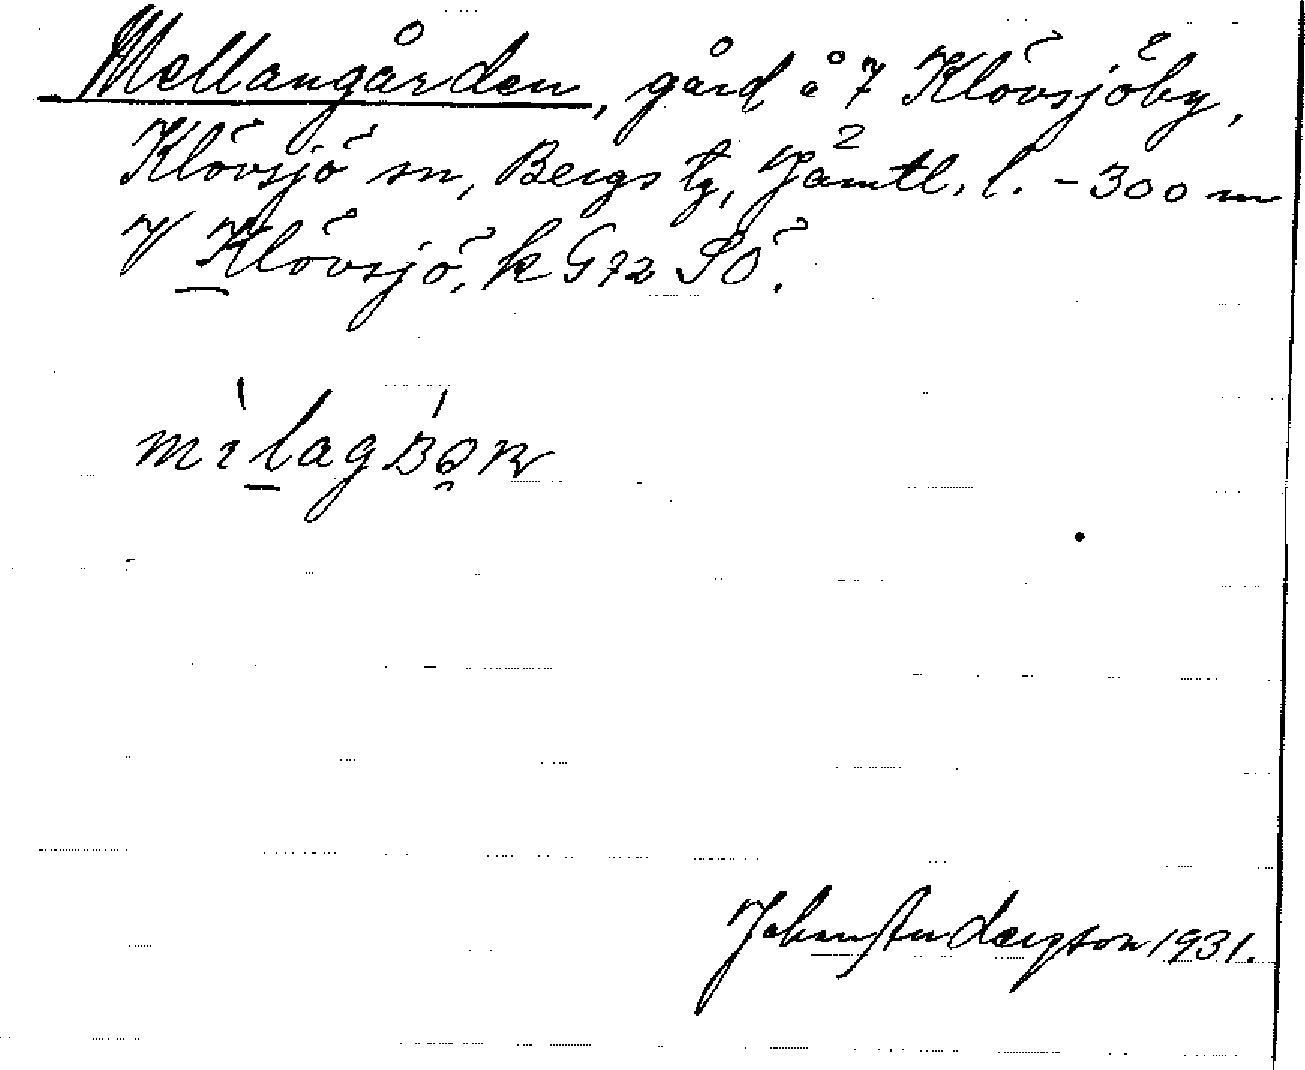 Mellangården, gård å 7 Klövsjöby,
Klövsjö sn, Bergs tg, Jämtl. l. - 300 m
V Klövsjö, k G72 SÖ.
Johan Anderzson 1931.